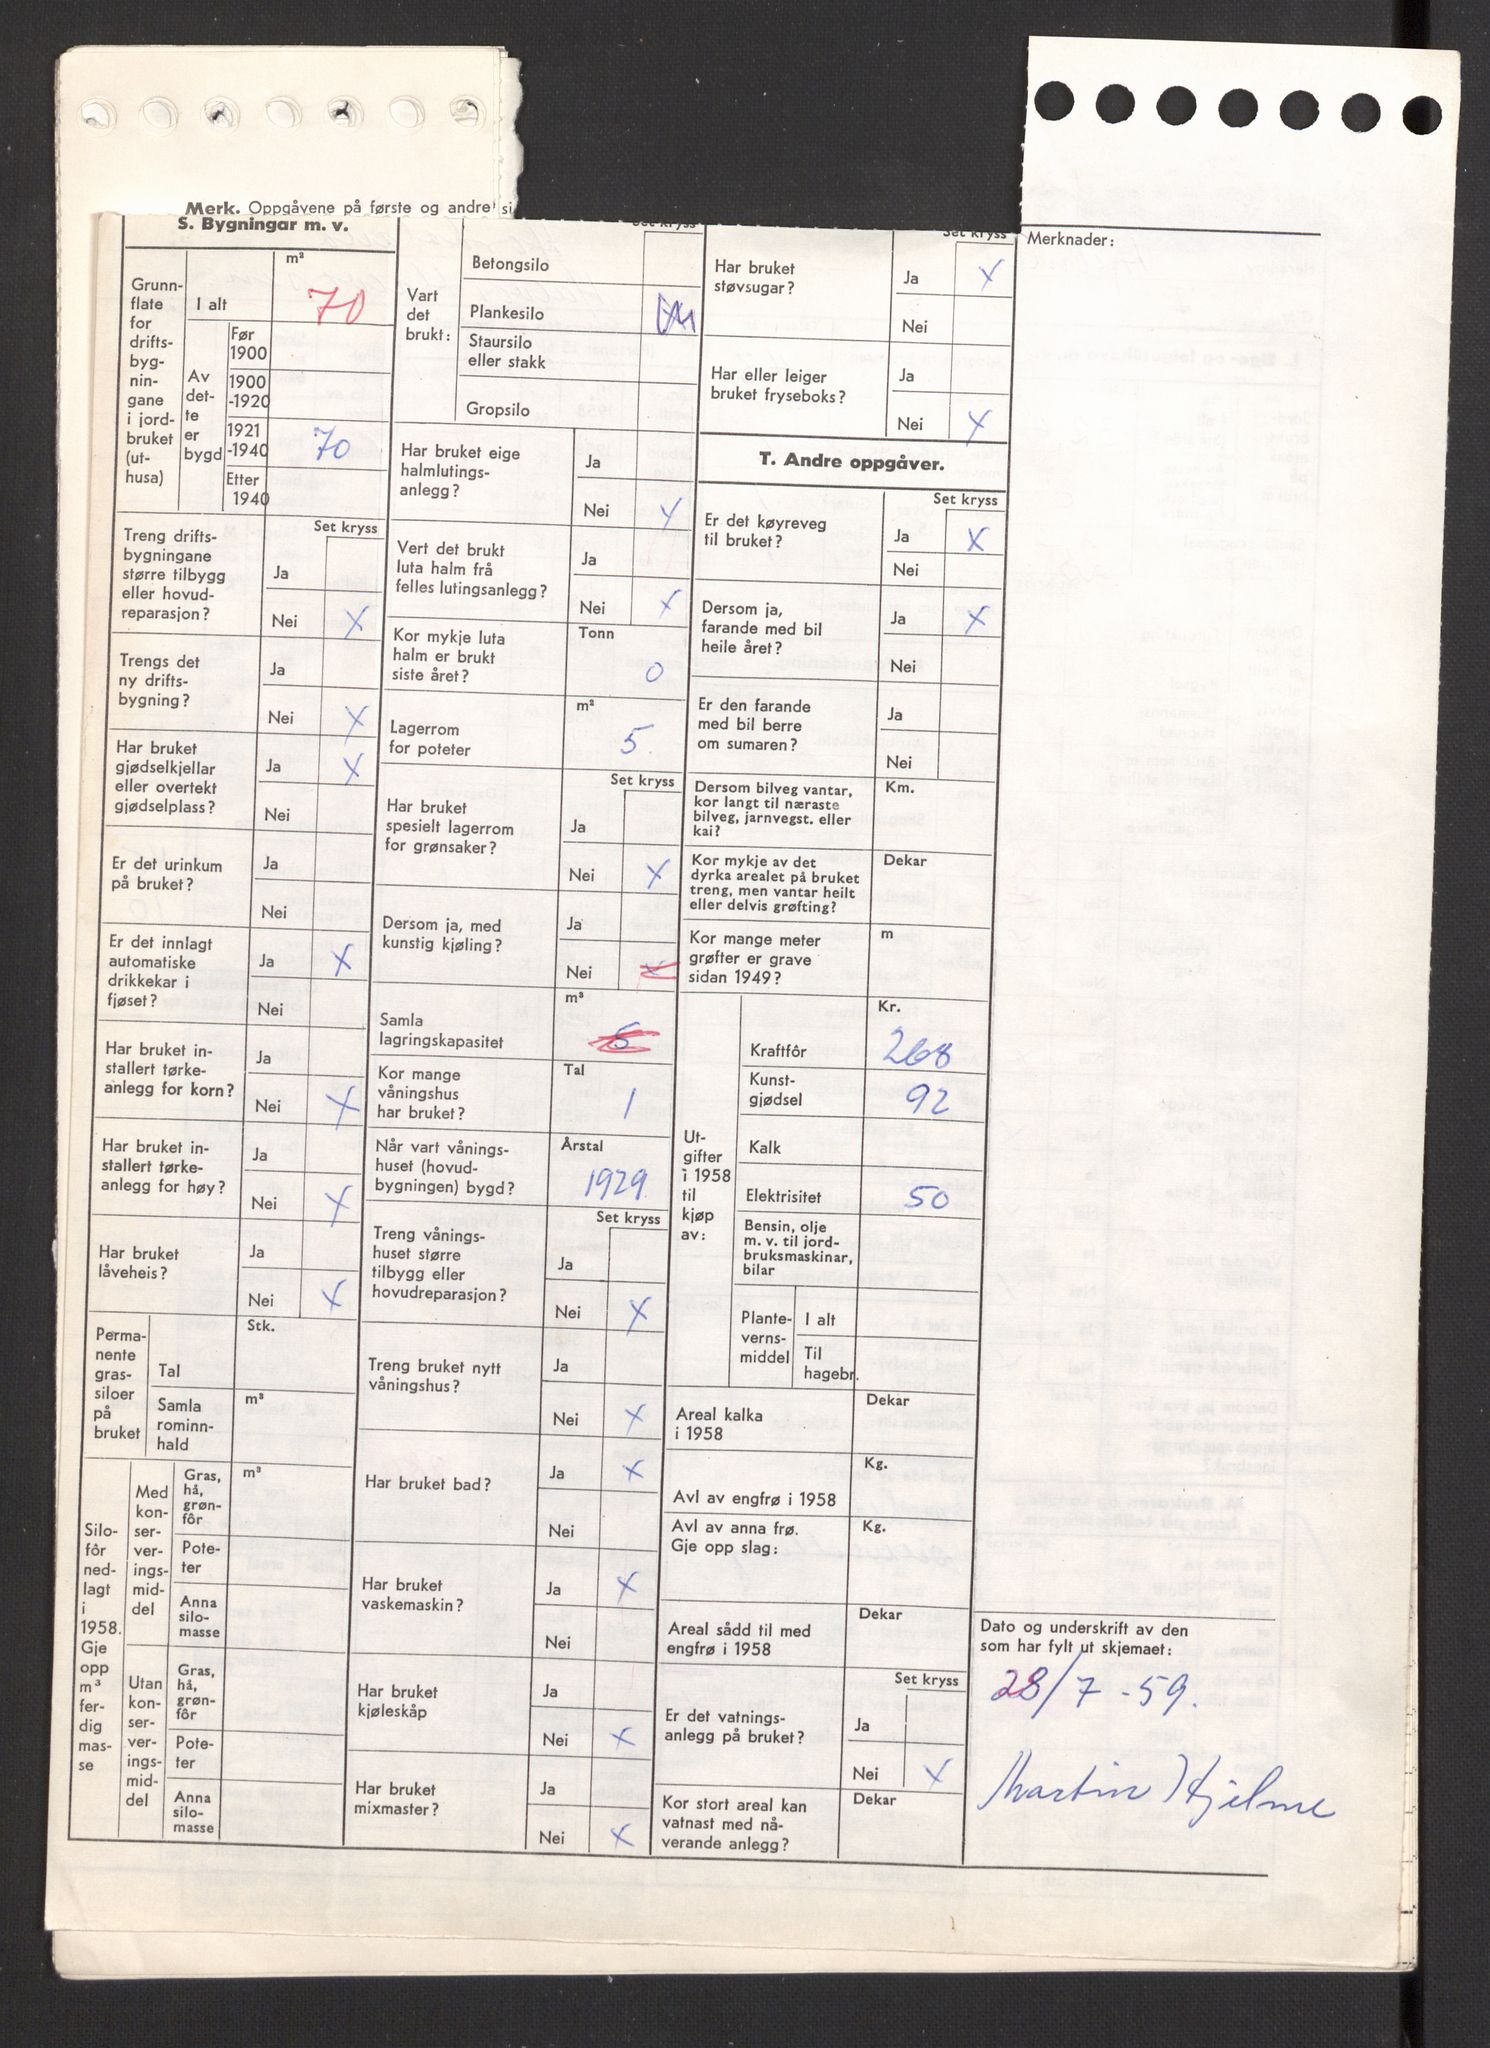 Merk. Oppgåvene på første og andre si
S. Bygningar m. v.
Grunn-
flate
for
drifts-
byg-
nin-
gane
i jord-
bruket
(ut-
husa)
I alt
m²
70
Av
det-
te
er
bygd
Før
1900
1900
-1920
1921
-1940
70
Etter
1940
Set kryss
Treng drifts-
bygningane
større tilbygg
eller hovud-
reparasjon?
Ja
Nei X
Trengs det
ny drifts-
bygning?
Ja
Nei X
Har bruket
gjødselkjellar
eller overtekt
gjødselplass?
Ja X
Nei
Er det urinkum
på bruket?
Ja
Nei
Er det innlagt
automatiske
drikkekar i
fjøset?
Ja X
Nei
Har bruket in-
stallert tørke-
anlegg for korn?
Ja
Nei X
Har bruket in-
stallert tørke-
anlegg for høy?
Ja
Nei X
Har bruket
låveheis?
Ja
Nei X
Perma-
nente
gras-
siloer
på
bruket
Tal
Stk.
Samla
rominn-
hald
m³
Silo-
fôr
ned-
lagt
i
1958.
Gje
opp
m³
fer-
dig
mas-
se
Med
kon-
ser-
ver-
ings-
mid-
del
Gras,
hå,
grøn-
fôr
m³
Pote-
ter
Anna
silo-
masse
Utan
kon-
ser-
ver-
ings-
mid-
del
Gras,
hå,
grøn-
fôr
Pote-
ter
Anna
silo-
masse
Set kryss
Vart
det
brukt:
Betongsilo
Plankesilo
Staursilo
eller stakk
Gropsilo
Har bruket eige
halmlutings-
anlegg?
Ja
Nei X
Vert det brukt
luta halm frå
felles lutingsanlegg?
Ja
Nei X
Kor mykje luta
halm er brukt
siste året?
Tonn
0
Lagerrom
for poteter
m²
5
Set kryss
Har bruket
spesielt lagerrom
for grønsaker?
Ja
Nei X
Dersom ja, med
kunstig kjøling?
Ja
Nei X
Samla
lagringskapasitet
m³
5
Kor mange
våningshus
har bruket?
Tal
1
Når vart vånings-
huset (hovud-
bygningen) bygd?
Årstal
1929
Set kryss
Treng vånings-
huset større
tilbygg eller
hovudreparasjon?
Ja
Nei X
Treng bruket nytt
våningshus?
Ja
Nei X
Har bruket bad?
Ja X
Nei
Har bruket
vaskemaskin?
Ja X
Nei
Har bruket
kjøleskåp
Ja
Nei X
Har bruket
mixmaster?
Ja
Nei X
Set kryss
Har bruket
støvsugar?
Ja X
Nei
Har eller leiger
bruket fryseboks?
Ja
Nei X
T. Andre oppgåver.
Set kryss
Er det køyreveg
til bruket?
Ja X
Nei
Dersom ja,
farande med bil
heile året?
Ja X
Nei
Er den farande
med bil berre
om sumaren?
Ja
Nei
Dersom bilveg vantar,
kor langt til næraste
bilveg, jarnvegst. eller
kai?
Km.
Kor mykje av det
dyrka arealet på bruket
treng, men vantar heilt
eller delvis grøfting?
Dekar
Kor mange meter
grøfter er grave
sidan 1949?
m
Ut-
gifter
i 1958
til
kjøp
av:
Kr.
Kraftfôr 268
Kunst-
gjødsel 92
Kalk
Elektrisitet 50
Bensin, olje
m. v. til jord-
bruksmaskinar,
bilar
Plante-
verns-
middel
I alt
Til
hagebr.
Areal kalka
i 1958
Dekar
Avl av engfrø i 1958
Kg.
Avl av anna frø.
Gje opp slag:
Kg.
Areal sådd til med
engfrø i 1958
Dekar
Set kryss
Er det vatnings-
anlegg på bruket?
Ja
Nei X
Kor stort areal kan
vatnast med nå-
verande anlegg?
Dekar
Merknader:
Dato og underskrift av den
som har fylt ut skjemaet:
28/7-59.
Martin Hjelme